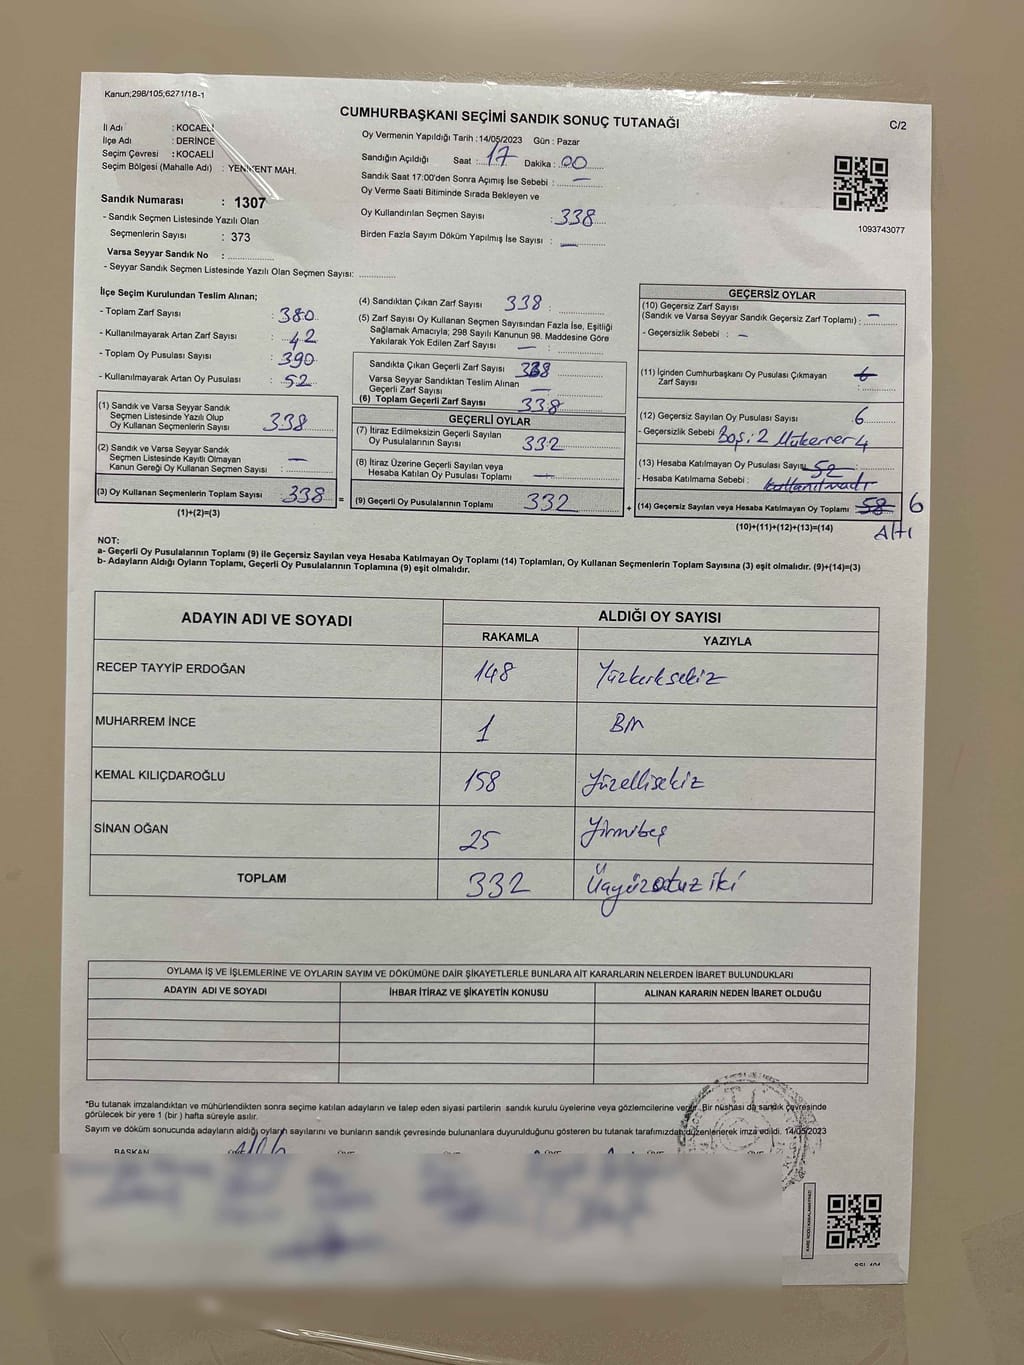 Kanun;298/105;6271/18-1
CUMHURBAŞKANI SEÇİMİ SANDIK SONUÇ TUTANAĞI
C/2
İl Adı : KOCAELİ
İlçe Adı : DERİNCE
Seçim Çevresi : KOCAELİ
Seçim Bölgesi (Mahalle Adı) : YENİKENT MAH.
Sandık Numarası : 1307
- Sandık Seçmen Listesinde Yazılı Olan
Seçmenlerin Sayısı : 373
Varsa Seyyar Sandık No : ....................
- Seyyar Sandık Seçmen Listesinde Yazılı Olan Seçmen Sayısı: ............
Oy Vermenin Yapıldığı Tarih : 14/05/2023 Gün : Pazar
Sandığın Açıldığı Saat : 17 Dakika : 00
Sandık Saat 17:00'den Sonra Açımış İse Sebebi : —
Oy Verme Saati Bitiminde Sırada Bekleyen ve
Oy Kullandırılan Seçmen Sayısı : 338
Birden Fazla Sayım Döküm Yapılmış İse Sayısı : —
1093743077
İlçe Seçim Kurulundan Teslim Alınan;
- Toplam Zarf Sayısı : 380
- Kullanılmayarak Artan Zarf Sayısı : 42
- Toplam Oy Pusulası Sayısı : 390
- Kullanılmayarak Artan Oy Pusulası : 52
(1) Sandık ve Varsa Seyyar Sandık
Seçmen Listesinde Yazılı Olup
Oy Kullanan Seçmenlerin Sayısı : 338
(2) Sandık ve Varsa Seyyar Sandık
Seçmen Listesinde Kayıtlı Olmayan
Kanun Gereği Oy Kullanan Seçmen Sayısı : —
(3) Oy Kullanan Seçmenlerin Toplam Sayısı : 338 =
(1)+(2)=(3)
(4) Sandıktan Çıkan Zarf Sayısı 338 :
(5) Zarf Sayısı Oy Kullanan Seçmen Sayısından Fazla İse, Eşitliği
Sağlamak Amacıyla; 298 Sayılı Kanunun 98. Maddesine Göre
Yakılarak Yok Edilen Zarf Sayısı — :
Sandıkta Çıkan Geçerli Zarf Sayısı 338
Varsa Seyyar Sandıktan Teslim Alınan
Geçerli Zarf Sayısı —
(6) Toplam Geçerli Zarf Sayısı 338
GEÇERLİ OYLAR
(7) İtiraz Edilmeksizin Geçerli Sayılan
Oy Pusulalarının Sayısı : 332
(8) İtiraz Üzerine Geçerli Sayılan veya
Hesaba Katılan Oy Pusulası Toplamı : —
(9) Geçerli Oy Pusulalarının Toplamı : 332 +
GEÇERSİZ OYLAR
(10) Geçersiz Zarf Sayısı
(Sandık ve Varsa Seyyar Sandık Geçersiz Zarf Toplamı) : —
- Geçersizlik Sebebi : —
(11) İçinden Cumhurbaşkanı Oy Pusulası Çıkmayan
Zarf Sayısı : 6
(12) Geçersiz Sayılan Oy Pusulası Sayısı : 6
- Geçersizlik Sebebi Boş: 2 Mükerrer 4
(13) Hesaba Katılmayan Oy Pusulası Sayısı 52
- Hesaba Katılmama Sebebi : kullanılmadı
(14) Geçersiz Sayılan veya Hesaba Katılmayan Oy Toplamı 58 6
Altı
(10)+(11)+(12)+(13)=(14)
NOT:
a- Geçerli Oy Pusulalarının Toplamı (9) ile Geçersiz Sayılan veya Hesaba Katılmayan Oy Toplamı (14) Toplamları, Oy Kullanan Seçmenlerin Toplam Sayısına (3) eşit olmalıdır. (9)+(14)=(3)
b- Adayların Aldığı Oyların Toplamı, Geçerli Oy Pusulalarının Toplamına (9) eşit olmalıdır.
ADAYIN ADI VE SOYADI ALDIĞI OY SAYISI
RAKAMLA YAZIYLA
RECEP TAYYİP ERDOĞAN 148 Yüzkırksekiz
MUHARREM İNCE 1 Bir
KEMAL KILIÇDAROĞLU 158 Yüzellisekiz
SİNAN OĞAN 25 Yirmibeş
TOPLAM 332 Üçyüzotuziki
OYLAMA İŞ VE İŞLEMLERİNE VE OYLARIN SAYIM VE DÖKÜMÜNE DAİR ŞİKAYETLERLE BUNLARA AİT KARARLARIN NELERDEN İBARET BULUNDUKLARI
ADAYIN ADI VE SOYADI İHBAR İTİRAZ VE ŞİKAYETİN KONUSU ALINAN KARARIN NEDEN İBARET OLDUĞU
*Bu tutanak imzalandıktan ve mühürlendikten sonra seçime katılan adayların ve talep eden siyasi partilerin sandık kurulu üyelerine veya gözlemcilerine verilir. Bir nüshası da sandık çevresinde
görülecek bir yere 1 (bir ) hafta süreyle asılır.
Sayım ve döküm sonucunda adayların aldığı oyların sayılarını ve bunların sandık çevresinde bulunanlara duyurulduğunu gösteren bu tutanak tarafımızdan düzenlenerek imza edildi. 14/05/2023
BAŞKAN